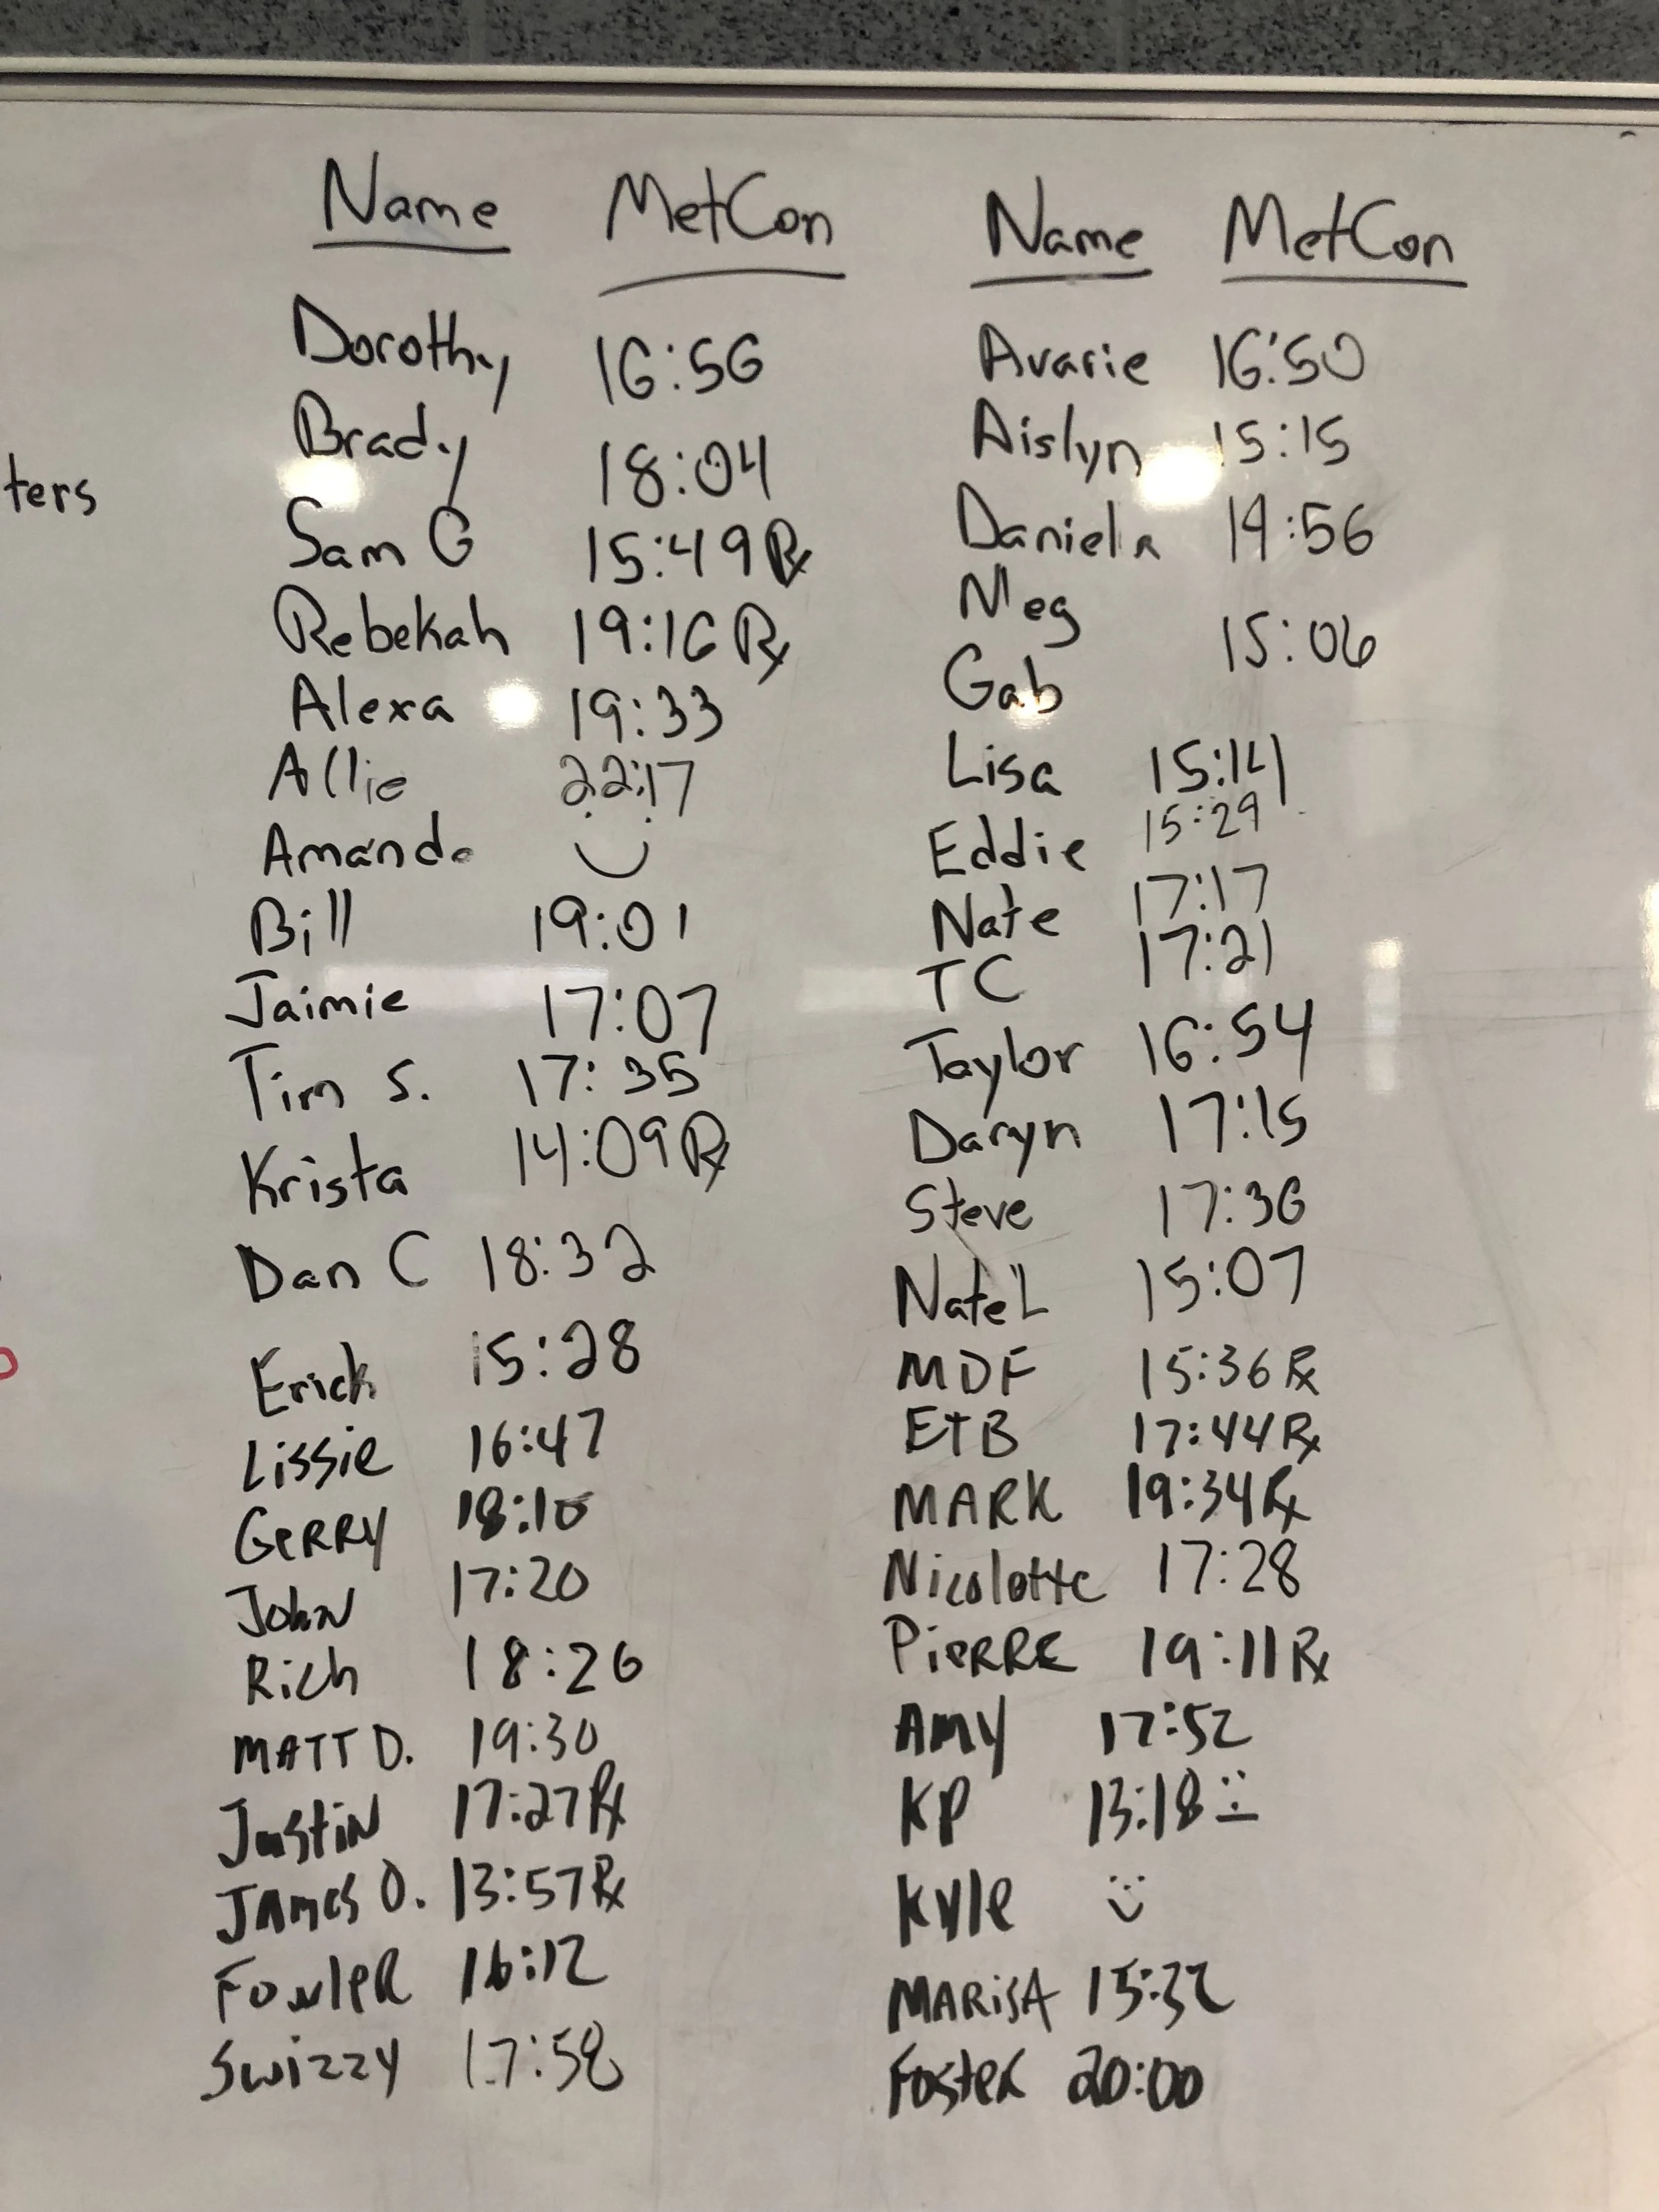 Name MetCon
Dorothy 16:56
Brady 18:04
Sam G 15:49 Rx
Rebekah 19:16 Rx
Alexa 19:33
Allie 22:17
Amanda
Bill 19:01
Jaimie 17:07
Tim S. 17:35
Krista 14:09 Rx
Dan C 18:32
Erick 15:28
Lissie 16:47
GeRRY 18:10
John 17:20
Rich 18:26
MATT D. 19:30
Justin 17:27 Rx
James O. 13:57 Rx
FowleR 16:12
Swizzy 17:58
Name MetCon
Avarie 16:50
Aislyn 15:15
Daniela 19:56
Meg
15:06
Gab
Lisa 15:14
Eddie 15:29
Nate 17:17
TC 17:21
Taylor 16:54
Daryn 17:15
Steve 17:36
Nate L 15:07
MDF 15:36 Rx
ETB 17:44 Rx
MARK 19:34 Rx
Nicolette 17:28
PieRRE 19:11 Rx
AMY 17:52
KP 13:18
Kyle
MARisA 15:32
Foster 20:00
ters